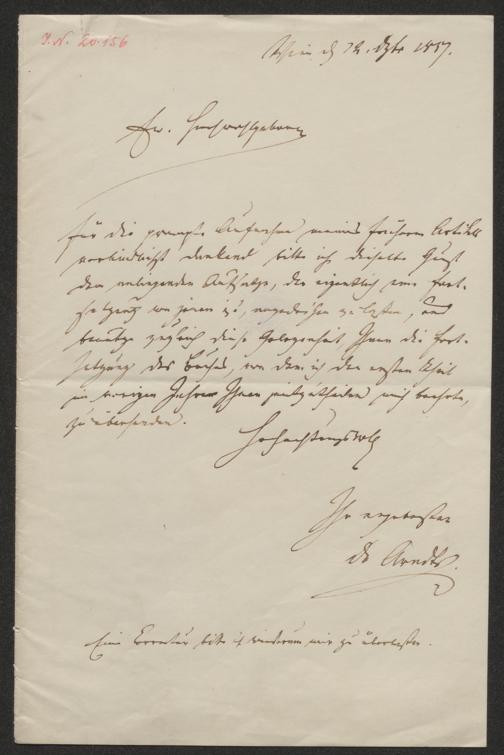 J.N. 20.156
Wien d 12. Dzbr 1857.
Ew. Hochwohlgeboren
für die prompte Aufnahme meines früheren Artikels
verbindlichst dankend bitte ich dieselbe Gunst
dem anliegenden Aufsatze, der eigentlich eine Fort-
setzung von jenem ist, angedeihen zu lassen, und
benütze zugleich diese Gelegenheit Ihnen die Fort-
setzung des Buches, von dem ich den ersten Theil
im vorigen Jahre Ihnen mitzutheilen mich beehrte,
zu übersenden.
Hochachtungsvoll
Ihr ergebenster
Dr Arndts.
Eine Correctur bitte ich wiederum mir zu überlassen.